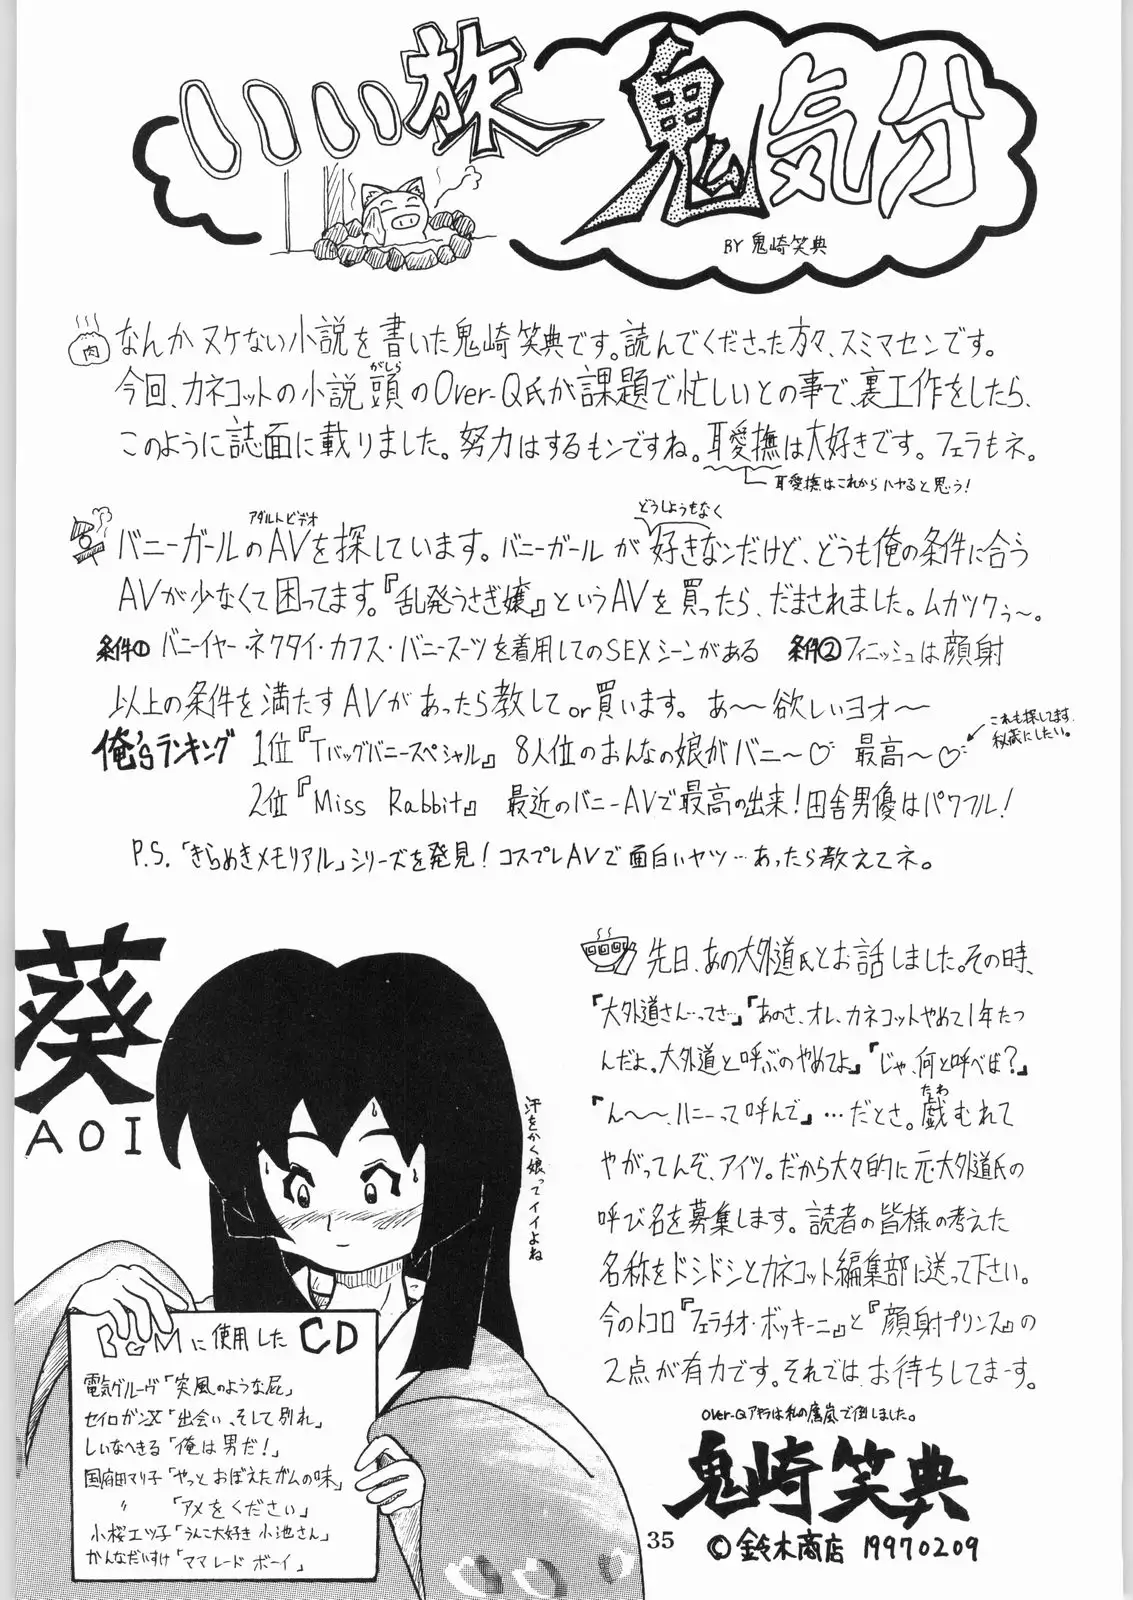 いい旅
鬼気分
BY 鬼崎笑典
肉
なんかヌケない小説を書いた鬼崎笑典です。読んでくださった方々、スミマセンです。
今回、カネコットの小説頭のOver-Q氏が課題で忙しいとの事で、裏工作をしたら、
がしら
このように誌面に載りました。努力はするもンですね。耳愛撫は大好きです。フェラもネ。
耳愛撫はこれからハヤると思う!
アダルトビデオ
どうしようもなく
バニーガールのAVを探しています。バニーガールが好きなンだけど、どうも俺の条件に合う
AVが少なくて困ってます。『乱発うさぎ嬢』というAVを買ったら、だまされました。ムカツクぅ〜。
条件① バニーイヤー・ネクタイ・カフス・バニースーツを着用してのSEXシーンがある 条件② フィニッシュは顔射
以上の条件を満たすAVがあったら教してor買います。あ〜〜欲しいヨオ〜
俺'sランキング 1位『Tバックバニースペシャル』 8人位のおんなの娘がバニ〜♡ 最高〜♡
これも探してます。
秘蔵にしたい。
2位『Miss Rabbit』 最近のバニーAVで最高の出来!田舎男優はパワフル!
P.S.「きらめきメモリアル」シリーズを発見!コスプレAVで面白いヤツ…あったら教えてネ。
葵
AOI
汗をかく娘ってイイよね
に使用したCD
電気グルーヴ「突風のような屁」
セイロガンX「出会い、そして別れ」
しいなへきる「俺は男だ!」
国府田マリ子「やっとおぼえたガムの味」
〃 「アメをください」
小桜エツ子「うんこ大好き小池さん」
かんなだいすけ「ママレードボーイ」
先日、あの大外道氏とお話しました。その時、
『大外道さん…ってさ…』『あのさ、オレ、カネコットやめて1年たつ
んだよ。大外道と呼ぶのやめてよ』『じゃ、何と呼べば?』
『ん〜〜、ハニーって呼んで』…だとさ。戯むれて
たわ
やがってんぞ、アイツ。だから大々的に元・大外道氏の
呼び名を募集します。読者の皆様の考えた
名称をドシドシとカネコット編集部に送って下さい。
今のトコロ『フェラチオ・ボッキーニ』と『顔射プリンス』の
2点が有力です。それでは、お待ちしてまーす。
鬼崎笑典
35
©鈴木商店 19970209